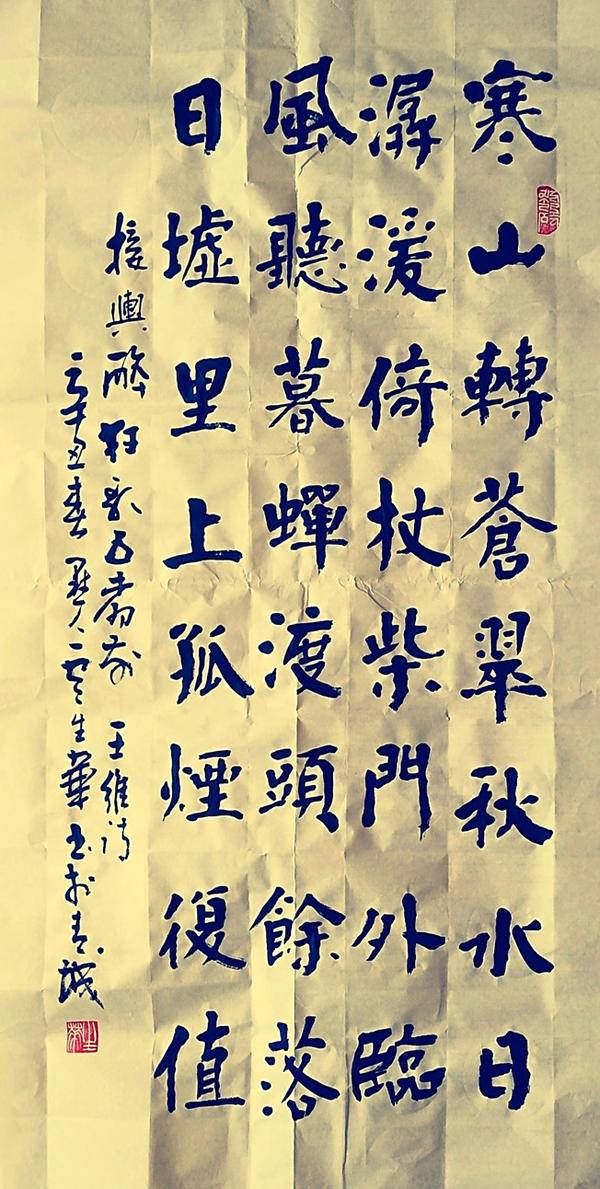 寒山轉蒼翠秋水日
潺湲倚杖柴門外臨
風聽暮蟬渡頭餘落
日墟里上孤煙復值
接輿醉狂歌五柳前 王維詩
辛丑春 生 书於青城